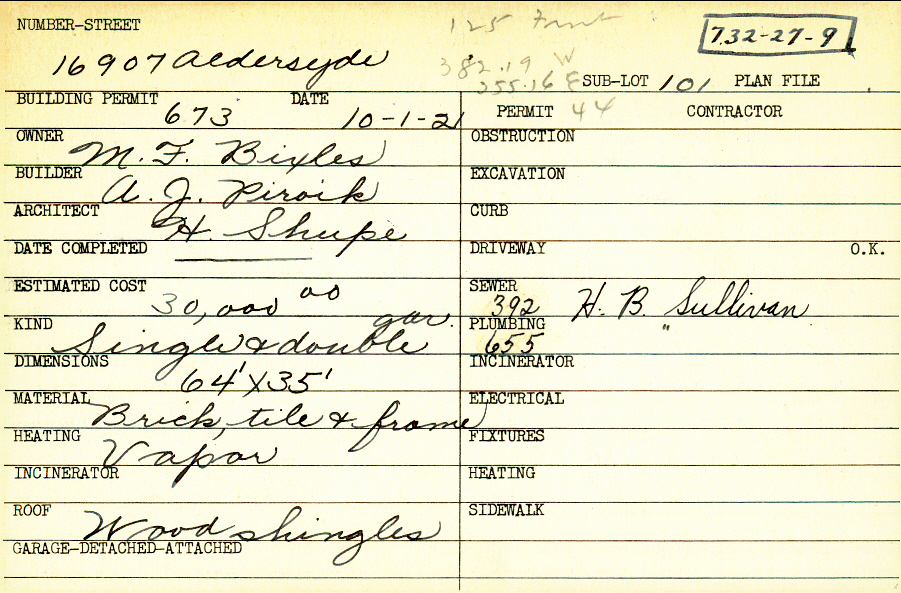 NUMBER-STREET
125 Front
732-27-9
16907 Aldersyde
382.19 W
255.16 E
SUB-LOT 101 PLAN FILE
BUILDING PERMIT 673 DATE 10-1-21
PERMIT 44 CONTRACTOR
OWNER M. F. Bixles
OBSTRUCTION
BUILDER A. J.
EXCAVATION
ARCHITECT H. Shupe
CURB
DATE COMPLETED
DRIVEWAY O.K.
ESTIMATED COST 30,000 00
SEWER 392 H. B. Sullivan
KIND Single & double gar.
PLUMBING 655 "
DIMENSIONS 64' X 35'
INCINERATOR
MATERIAL Brick, tile & frame
ELECTRICAL
HEATING Vapor
FIXTURES
INCINERATOR
HEATING
ROOF Wood shingles
SIDEWALK
GARAGE-DETACHED-ATTACHED